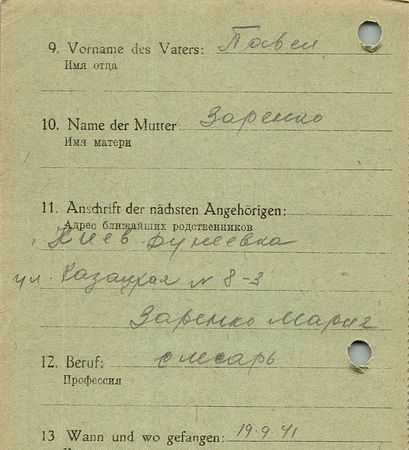 9. Vorname des Vaters: Павел
Имя отца
10. Name der Mutter: Заренко
Имя матери
11. Anschrift der nächsten Angehörigen:
Адрес ближайших родственников
Киев
ул. Казацкая N 8-3
Заренко Мария
12. Beruf: слесарь
Профессия
13 Wann und wo gefangen: 19.9.41